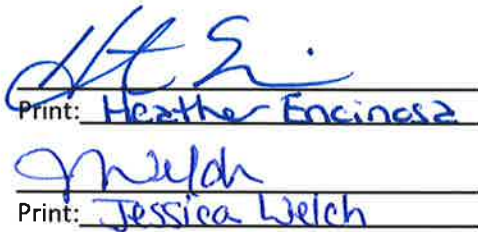 Print: Heather Encinosa
JWelch
Print: Jessica Welch